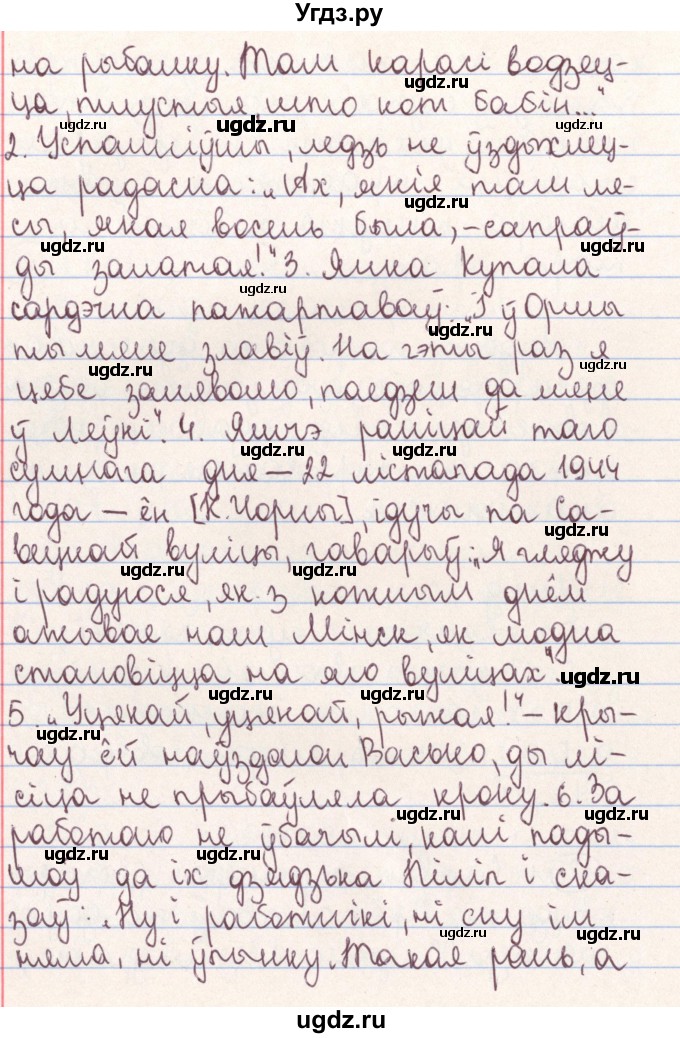 Угдз.ру
на рыбалку. Там карасі водзец-
ца, тлустыя, што кот бабін..."
2. Успомніўшы, ледзь не ўздыхне-
ца радасна: „Ах, якія там ля-
сы, якая восень была, – сапраў-
ды залатая!" 3. Янка Купала
сардэчна пажартаваў: „І ў Оршы
ты мяне злавіў. На гэты раз я
цебе заняволю, паедзеш да мяне
ў Леўкі". 4. Яшчэ раніцай таго
сумнага дня – 22 лістапада 1944
года – ён [К. Чорны], ідучы па Са-
вецкай вуліцы, гаварыў: „Я гляджу
і радуюся, як з кожным днём
ажывае наш Мінск, як модна
становіцца на яго вуліцах".
5. „Уцякай, уцякай, рыжая!" – кры-
чаў ёй наўздагон Васько, ды лі-
сіца не прыбаўляла кроку. 6. За
работаю не ўбачылі, калі пады-
шоў да іх дзядзька Піліп і ска-
заў: „Ну і работнікі, ні сну ім
няма, ні ўпынку. Такая рань, а
ugdz.ru